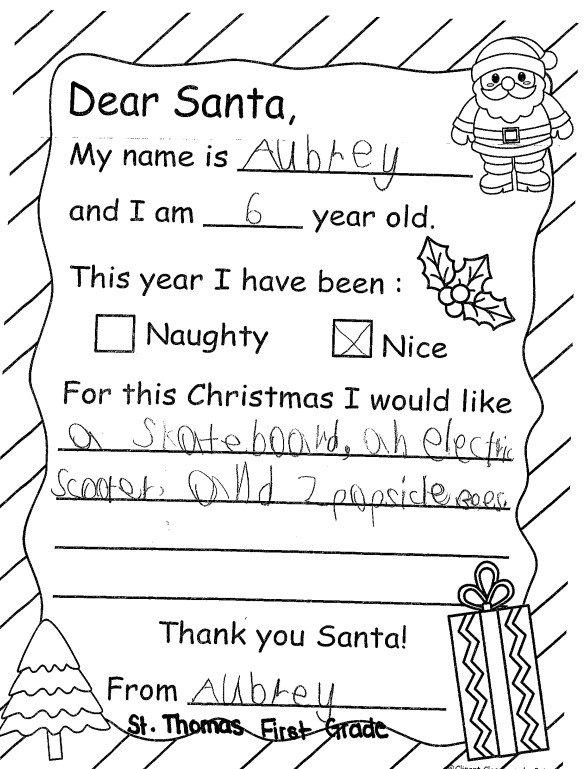 Dear Santa,
My name is Aubrey
and I am 6 year old.
This year I have been :
Naughty Nice
For this Christmas I would like
a skateboard, an electric
scooter, and 2 popsicle
Thank you Santa!
From Aubrey
St. Thomas First Grade